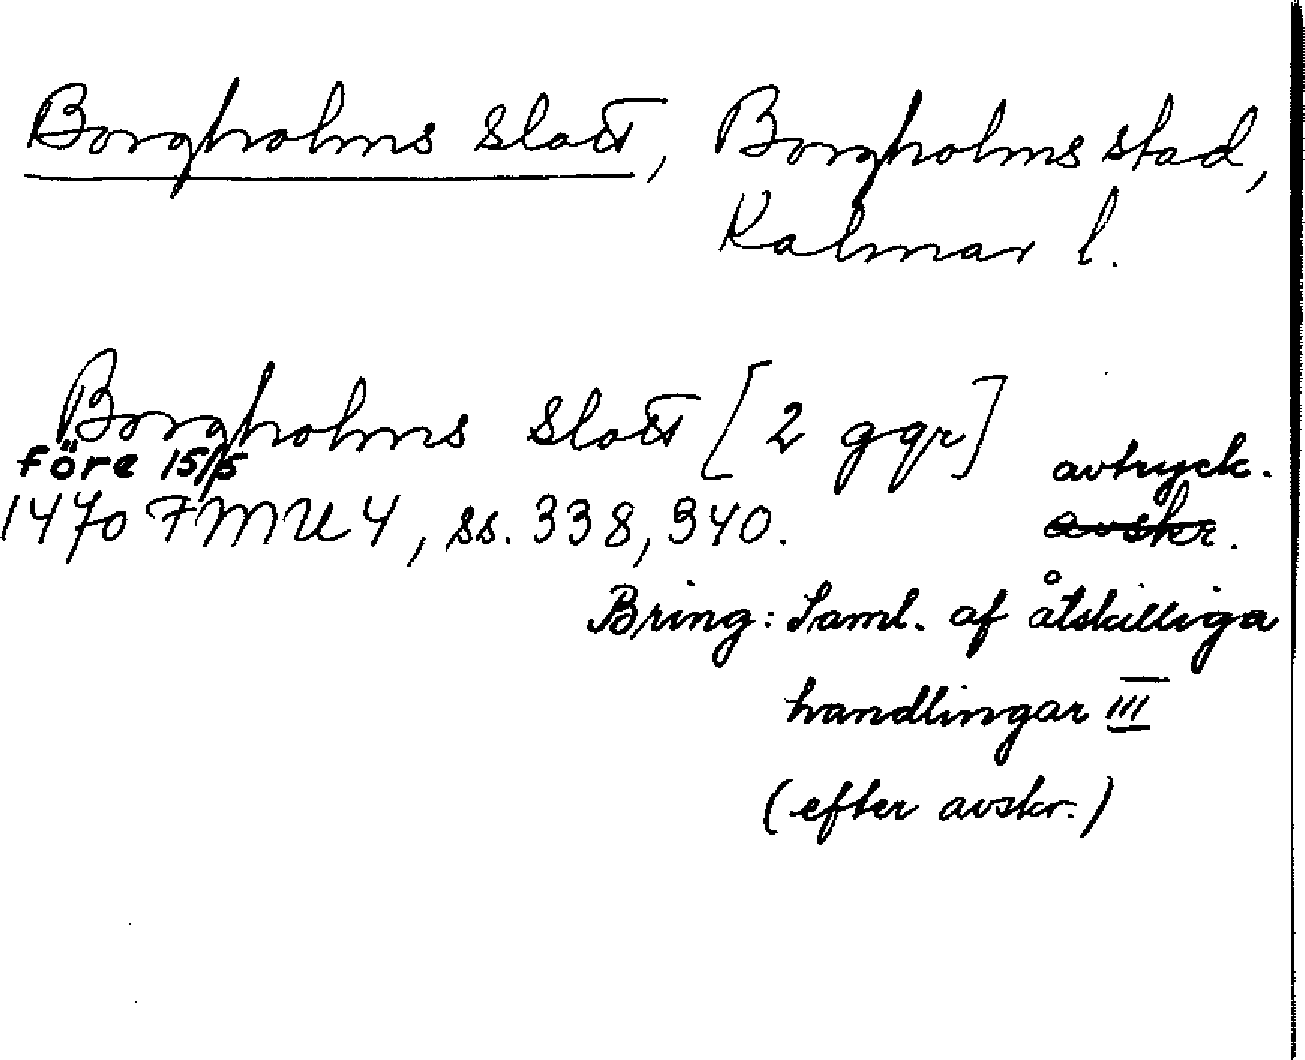 Borgholms Slott, Borgholms stad,
Kalmar l.
Borgholms Slott [2 ggr]
före 15/5
avtryck.
1470 FMU 4, ss. 338, 340.
avskr.
Bring: Saml. af åtskilliga
handlingar III
(efter avskr.)